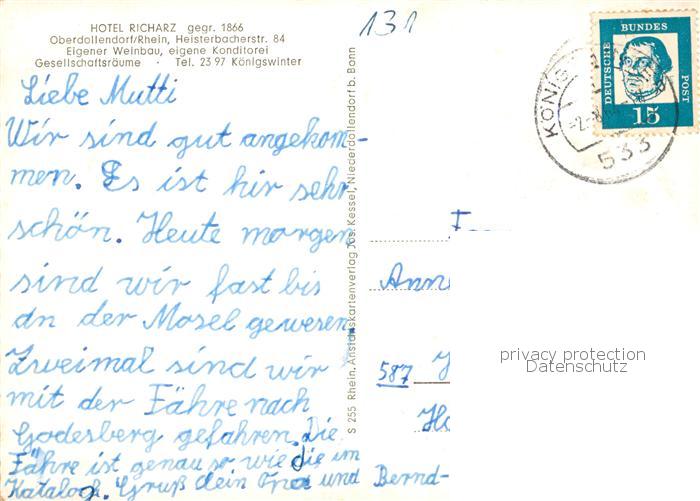 HOTEL RICHARZ gegr. 1866
Oberdollendorf/Rhein, Heisterbacherstr. 84
Eigener Weinbau, eigene Konditorei
Gesellschaftsräume · Tel. 23 97 Königswinter
131
DEUTSCHE
BUNDES
POST
15
KÖNIGS
533
Liebe Mutti
Wir sind gut angekom-
men. Es ist hir sehr
schön. Heute morgen
sind wir fast bis
an der Mosel gewesen
Zweimal sind wir
mit der Fähre nach
Godesberg gefahren. Die
Fähre ist genau so wie die im
Katalog. Gruß dein und Bernd-
S 255 Rhein. Ansichtskartenverlag Jos. Kessel, Niederdollendorf b. Bonn
Ann
587
privacy protection
Datenschutz